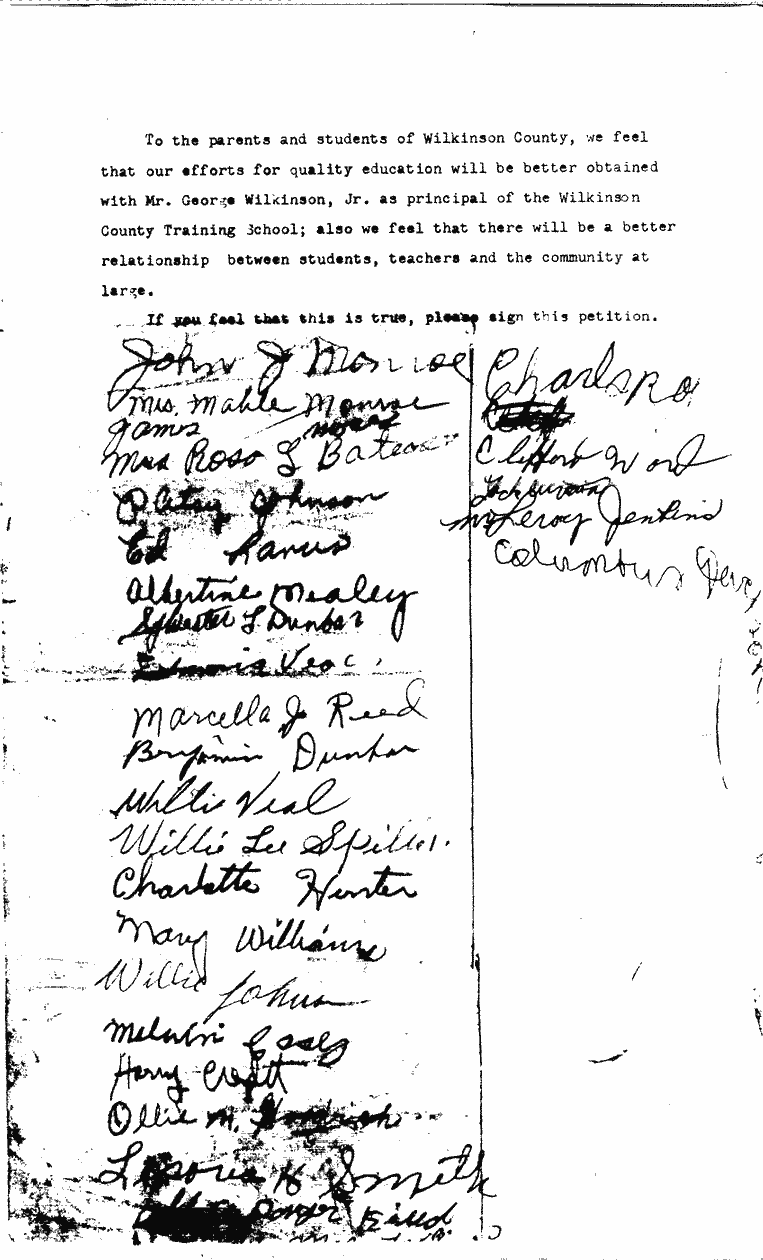 To the parents and students of Wilkinson County, we feel
that our efforts for quality education will be better obtained
with Mr. George Wilkinson, Jr. as principal of the Wilkinson
County Training School; also we feel that there will be a better
relationship between students, teachers and the community at
large.
If you feel that this is true, please sign this petition.
John J Monroe
Mrs. Mable Monroe
James
Mrs Rosa L Bateman
Patsy Johnson
Ed
Albertine Mealey
Sylvester L Dunbar
Marcella J Reed
Benjamin Dunbar
Willie Veal
Willie Lee
Charlotte Hunter
Mary Williams
Willie
Melvin
Harry
Ollie M.
H Smith
Clifford Word
McLeroy Jenkins
Columbus